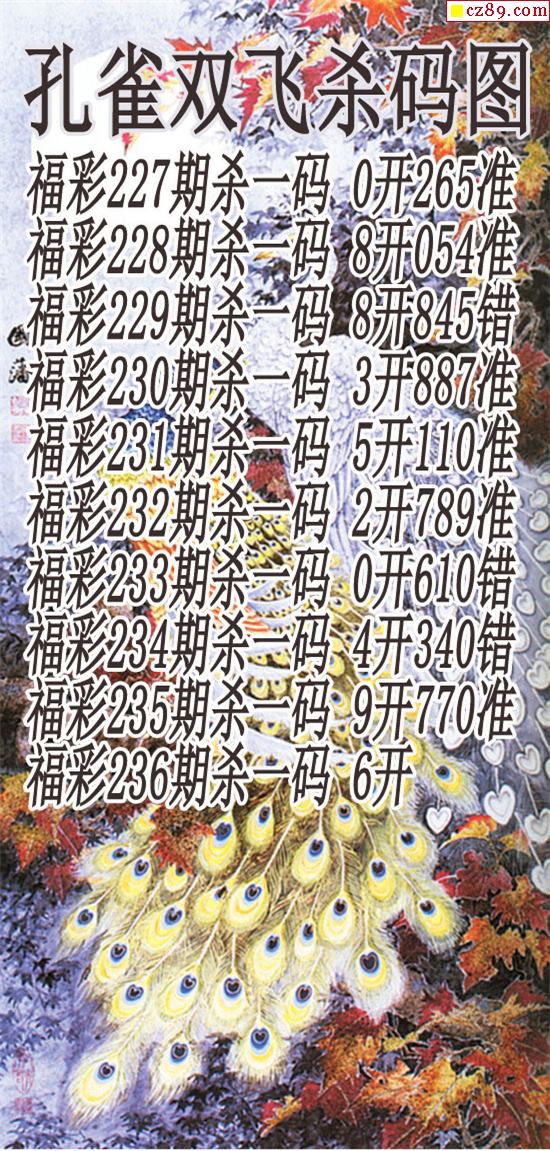 cz89.com
孔雀双飞杀码图
福彩227期杀一码 0开265准
福彩228期杀一码 8开054准
福彩229期杀一码 8开845错
福彩230期杀一码 3开887准
福彩231期杀一码 5开110准
福彩232期杀一码 2开789准
福彩233期杀一码 0开610错
福彩234期杀一码 4开340错
福彩235期杀一码 9开770准
福彩236期杀一码 6开